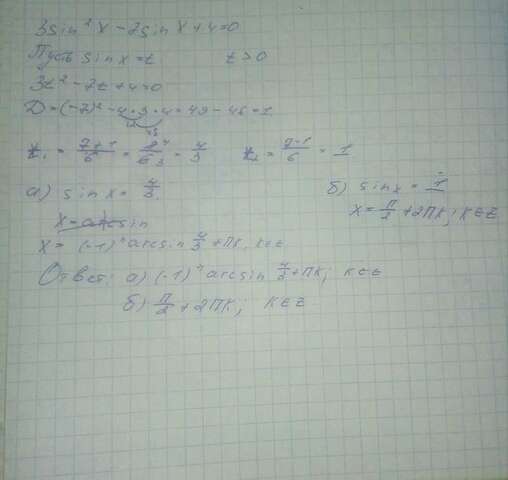 3sin² x - 7sin x + 4 = 0
Пусть sin x = t t > 0
3t² - 7t + 4 = 0
D = (-7)² - 4·3·4 = 49 - 48 = 1
t₁ = 7+1/6 = 8⁴/6₃ = 4/3 t₂ = 7-1/6 = 1
а) sin x = 4/3. б) sin x = 1
x = arcsin x = π/2 + 2πk; k∈Z
x = (-1)ⁿ arcsin 4/3 + πk, k∈Z
Ответ: а) (-1)ⁿ arcsin 4/3 + πk; k∈Z
б) π/2 + 2πk; k∈Z